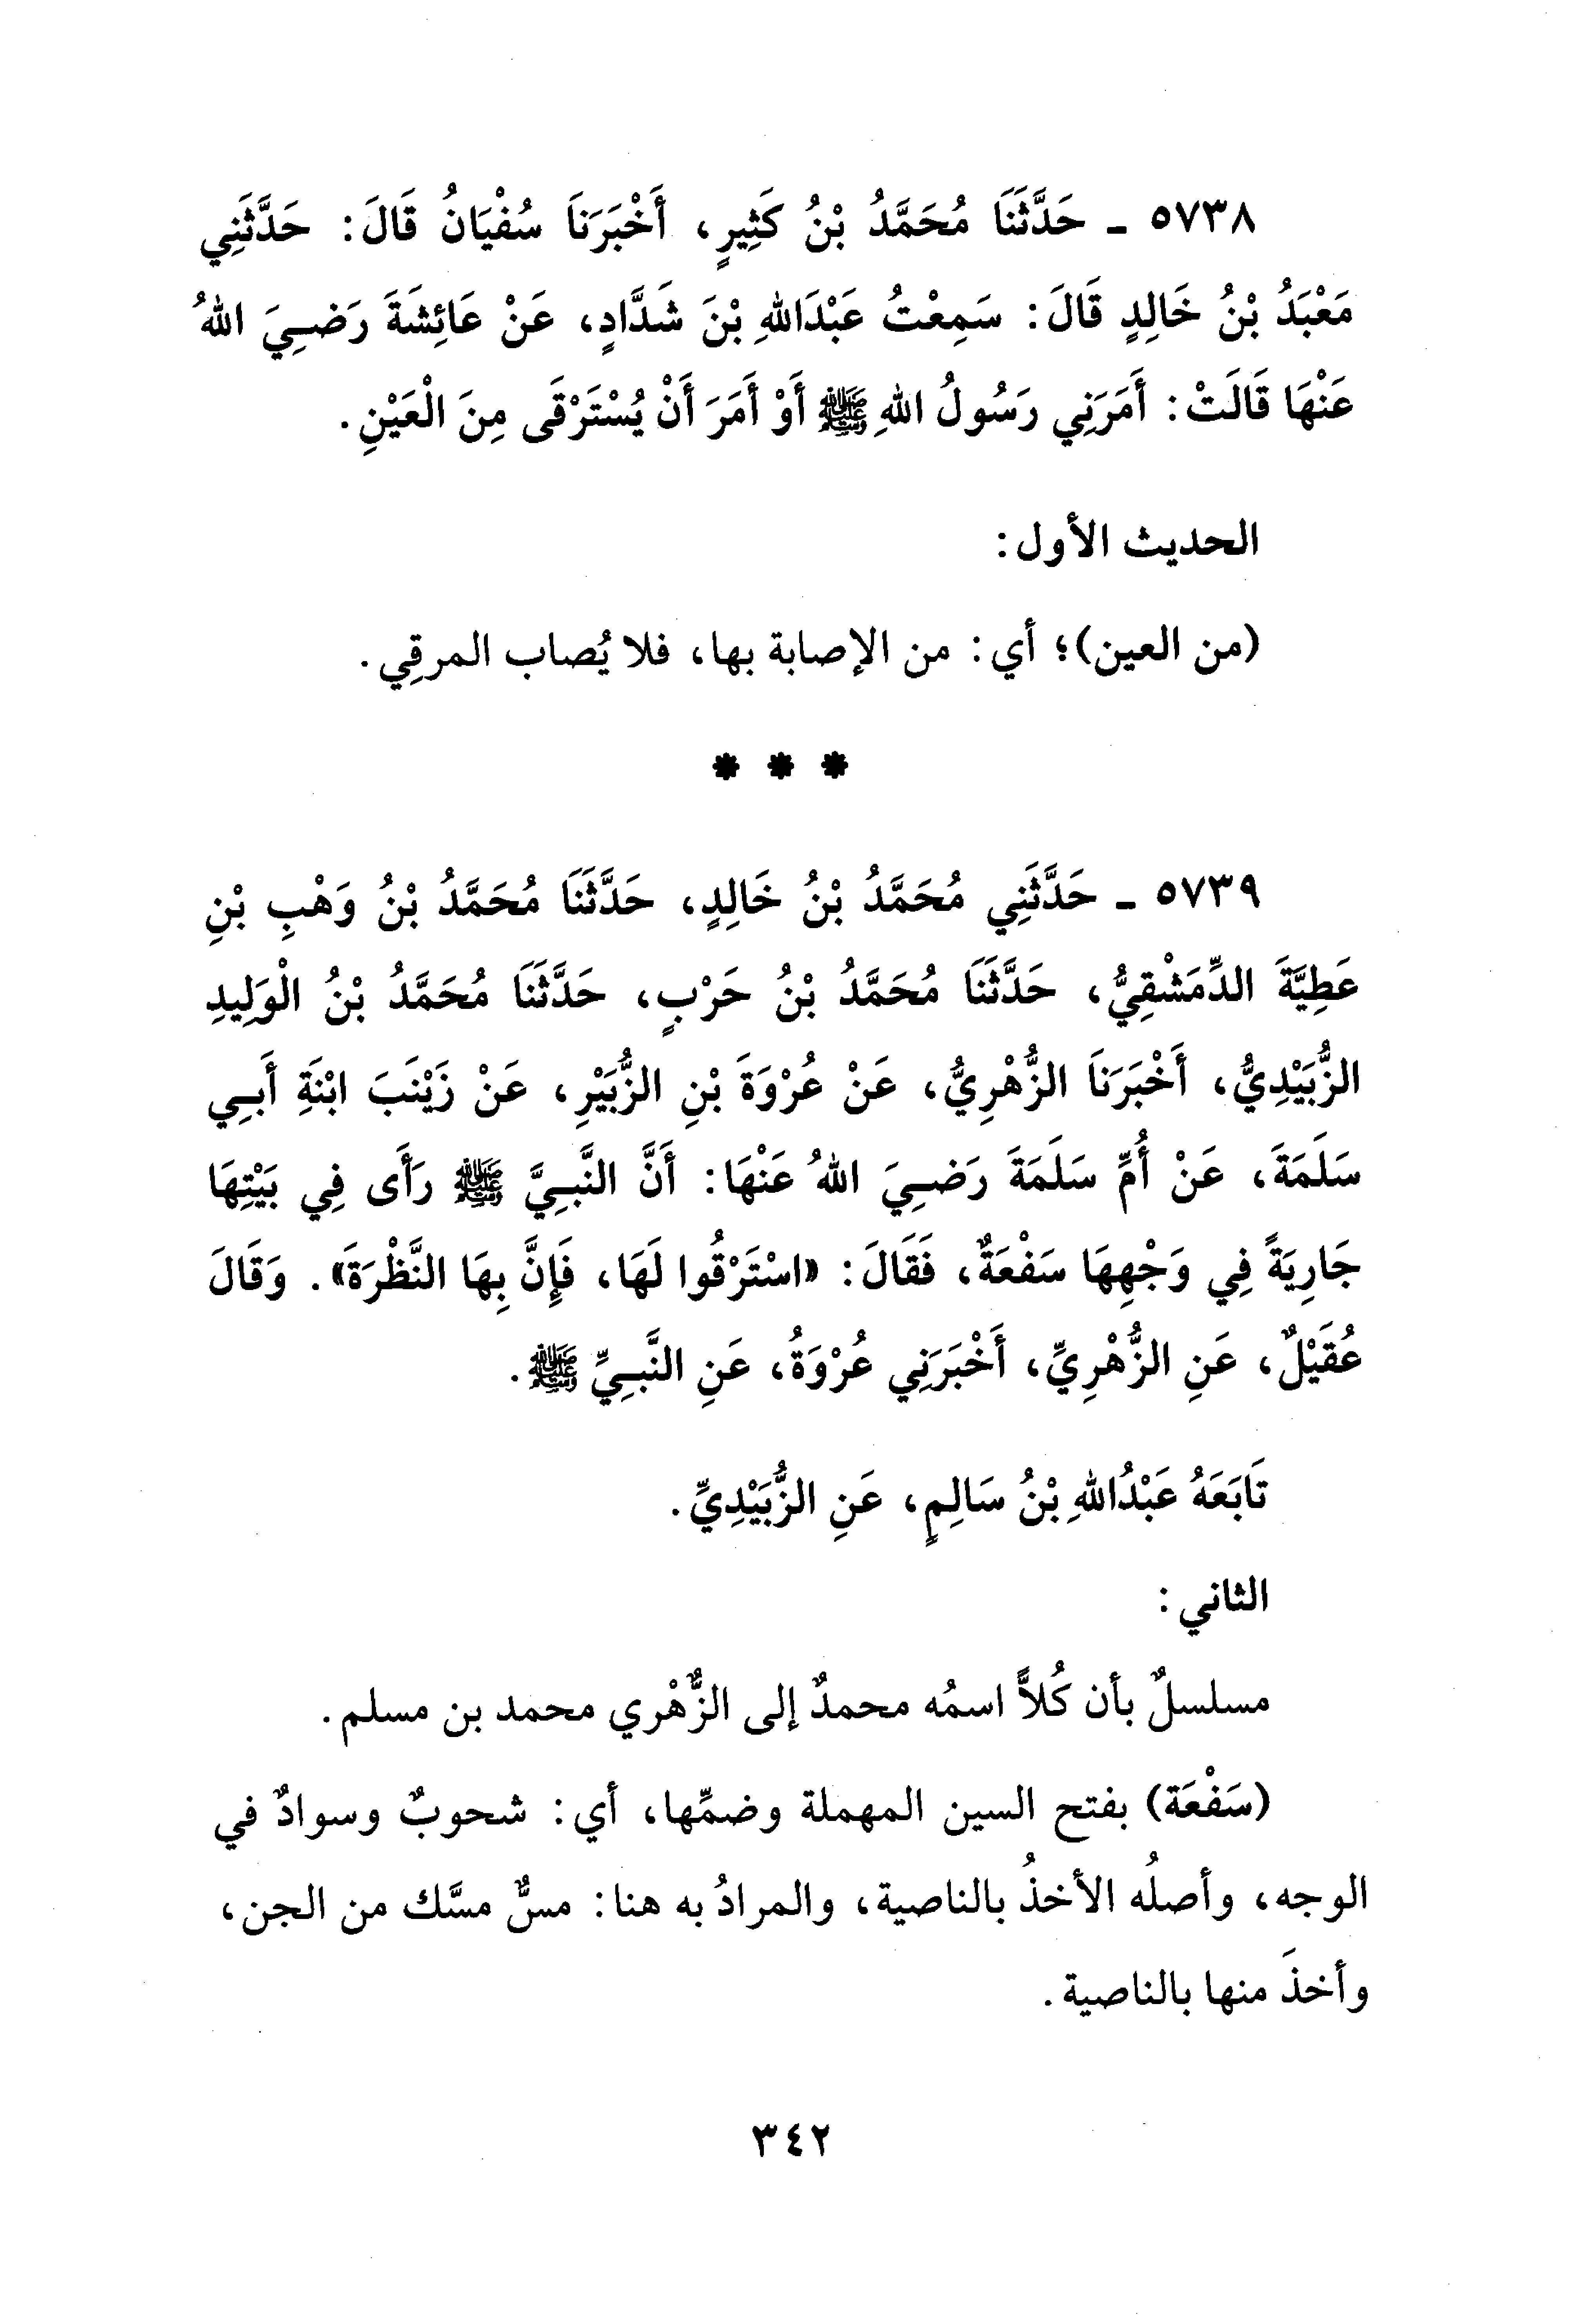 ٥٧٣٨ ـ حَدَّثَنَا مُحَمَّدُ بْنُ كَثِيرٍ، أَخْبَرَنَا سُفْيَانُ قَالَ: حَدَّثَنِي
مَعْبَدُ بْنُ خَالِدٍ قَالَ: سَمِعْتُ عَبْدَاللهِ بْنَ شَدَّادٍ، عَنْ عَائِشَةَ رَضِيَ اللهُ
عَنْهَا قَالَتْ: أَمَرَنِي رَسُولُ اللهِ ﷺ أَوْ أَمَرَ أَنْ يُسْتَرْقَى مِنَ الْعَيْنِ.
الحديث الأول:
(من العين)؛ أي: من الإصابة بها، فلا يُصاب المرقِي.
* * *
٥٧٣٩ ـ حَدَّثَنِي مُحَمَّدُ بْنُ خَالِدٍ، حَدَّثَنَا مُحَمَّدُ بْنُ وَهْبِ بْنِ
عَطِيَّةَ الدِّمَشْقِيُّ، حَدَّثَنَا مُحَمَّدُ بْنُ حَرْبٍ، حَدَّثَنَا مُحَمَّدُ بْنُ الْوَلِيدِ
الزُّبَيْدِيُّ، أَخْبَرَنَا الزُّهْرِيُّ، عَنْ عُرْوَةَ بْنِ الزُّبَيْرِ، عَنْ زَيْنَبَ ابْنَةِ أَبِي
سَلَمَةَ، عَنْ أُمِّ سَلَمَةَ رَضِيَ اللهُ عَنْهَا: أَنَّ النَّبِيَّ ﷺ رَأَى فِي بَيْتِهَا
جَارِيَةً فِي وَجْهِهَا سَفْعَةٌ، فَقَالَ: «اسْتَرْقُوا لَهَا، فَإِنَّ بِهَا النَّظْرَةَ». وَقَالَ
عُقَيْلٌ، عَنِ الزُّهْرِيِّ، أَخْبَرَنِي عُرْوَةُ، عَنِ النَّبِيِّ ﷺ.
تَابَعَهُ عَبْدُاللهِ بْنُ سَالِمٍ، عَنِ الزُّبَيْدِيِّ.
الثاني:
مسلسلٌ بأن كُلاًّ اسمُه محمدٌ إلى الزُّهْري محمد بن مسلم.
(سَفْعَة) بفتح السين المهملة وضمِّها، أي: شحوبٌ وسوادٌ في
الوجه، وأصلُه الأخذُ بالناصية، والمرادُ به هنا: مسٌّ مسَّك من الجن،
وأخذَ منها بالناصية.
٣٤٢